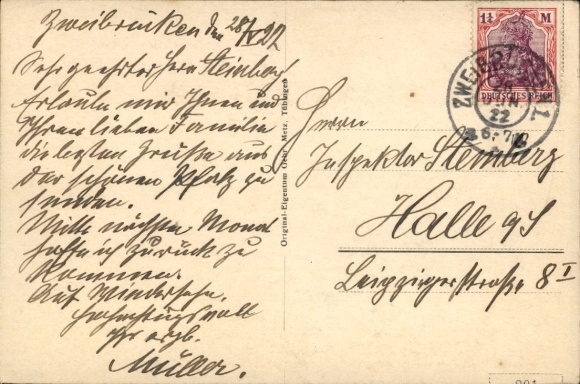 Zweibrücken den 28/V 22
Sehr geehrter Herr Steinberg
Erlaube mir Ihnen und
Ihrer lieben Familie
die besten Grüße aus
der schönen Pfalz zu
senden.
Mitte nächsten Monat
hoffe ich zurück zu
kommen.
Auf Wiedersehn.
Hochachtungsvoll
Ihr ergb.
Müller.
Original-Eigentum Orth, Metz, Tübingen
1¼ M
DEUTSCHES REICH
ZWEIBR
22
6-7
1
Herrn
Inspektor Steinberg
Halle a/S
Leipzigerstraße 8 I